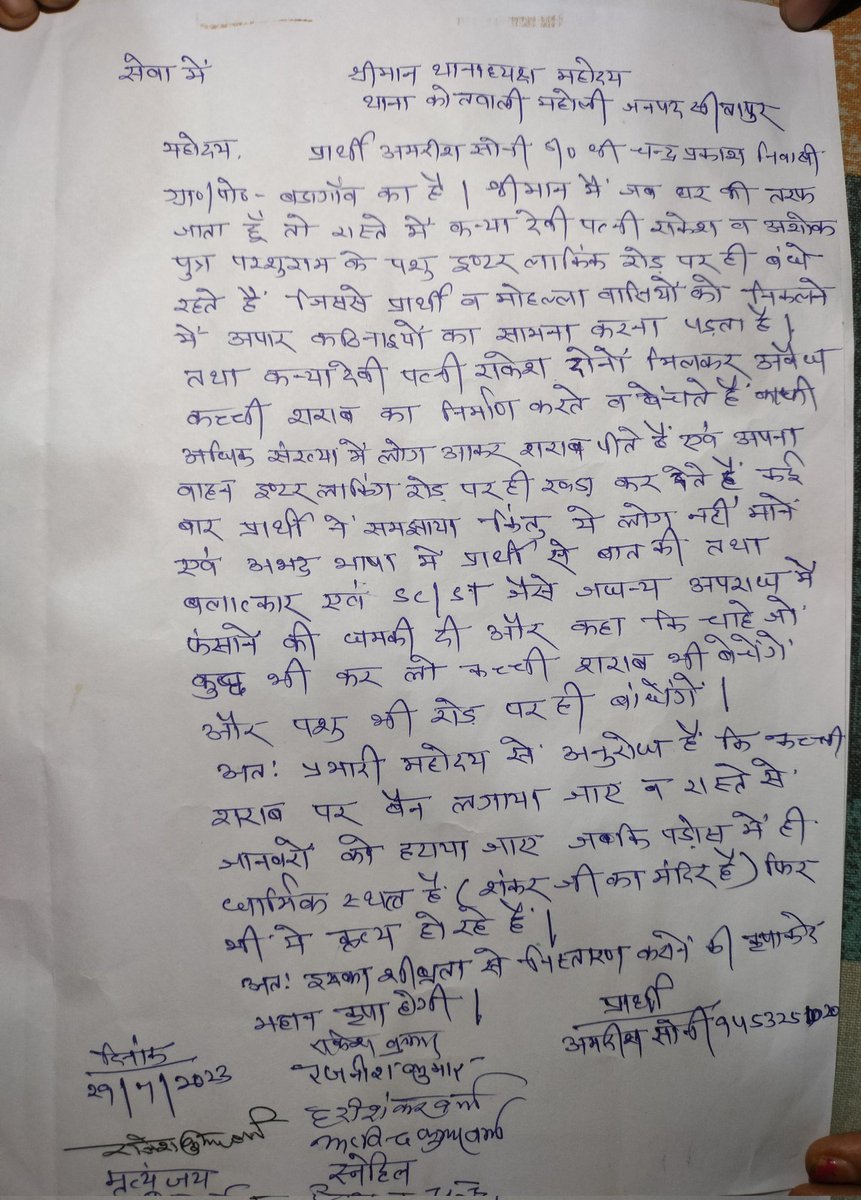 सेवा में
श्रीमान थानाध्यक्ष महोदय
थाना कोतवाली महोली जनपद सीतापुर
महोदय, प्रार्थी अमरीश सोनी S/O श्री चन्द्र प्रकाश निवासी
ग्रा०/पो०- बडागाँव का है। श्रीमान मैं जब घर की तरफ
जाता हूँ तो रास्ते में कन्या देवी पत्नी राकेश व अशोक
पुत्र परशुराम के पशु इण्टर लाकिंक रोड़ पर ही बंधे
रहते हैं जिससे प्रार्थी व मोहल्ला वासियों को निकलने
में अपार कठिनाइयों का सामना करना पड़ता है।
तथा कन्यादेवी पत्नी राकेश दोनों मिलकर अवैध
कच्ची शराब का निर्माण करते व बेंचते हैं काफी
अधिक संख्या में लोग आकर शराब पीते हैं एवं अपना
वाहन इण्टर लाकिंग रोड़ पर ही खडा कर देते हैं कई
बार प्रार्थी ने समझाया किंतु ये लोग नहीं माने
एवं अभद्र भाषा में प्रार्थी से बात की तथा
बलात्कार एवं SC/ST जैसे जघन्य अपराध में
फंसाने की धमकी दी और कहा कि चाहे जो
कुछ भी कर लो कच्ची शराब भी बेचेंगे
और पशु भी रोड़ पर ही बांधेंगें।
अतः प्रभारी महोदय से अनुरोध है कि कच्ची
शराब पर बैन लगाया जाए व रास्ते से
जानवरों को हटाया जाए जबकि पड़ोस में ही
धार्मिक स्थल है (शंकर जी का मंदिर है) फिर
भी ये कृत्य हो रहे हैं।
अतः इसका शीघ्रता से निस्तारण कराने की कृपा करें
महान कृपा होगी।
प्रार्थी
अमरीश सोनी
दिनांक
29/7/2023
राकेश कुमार
रजनीश कुमार
हरीशंकर वर्मा
स्नेहिल
मृत्युंजय